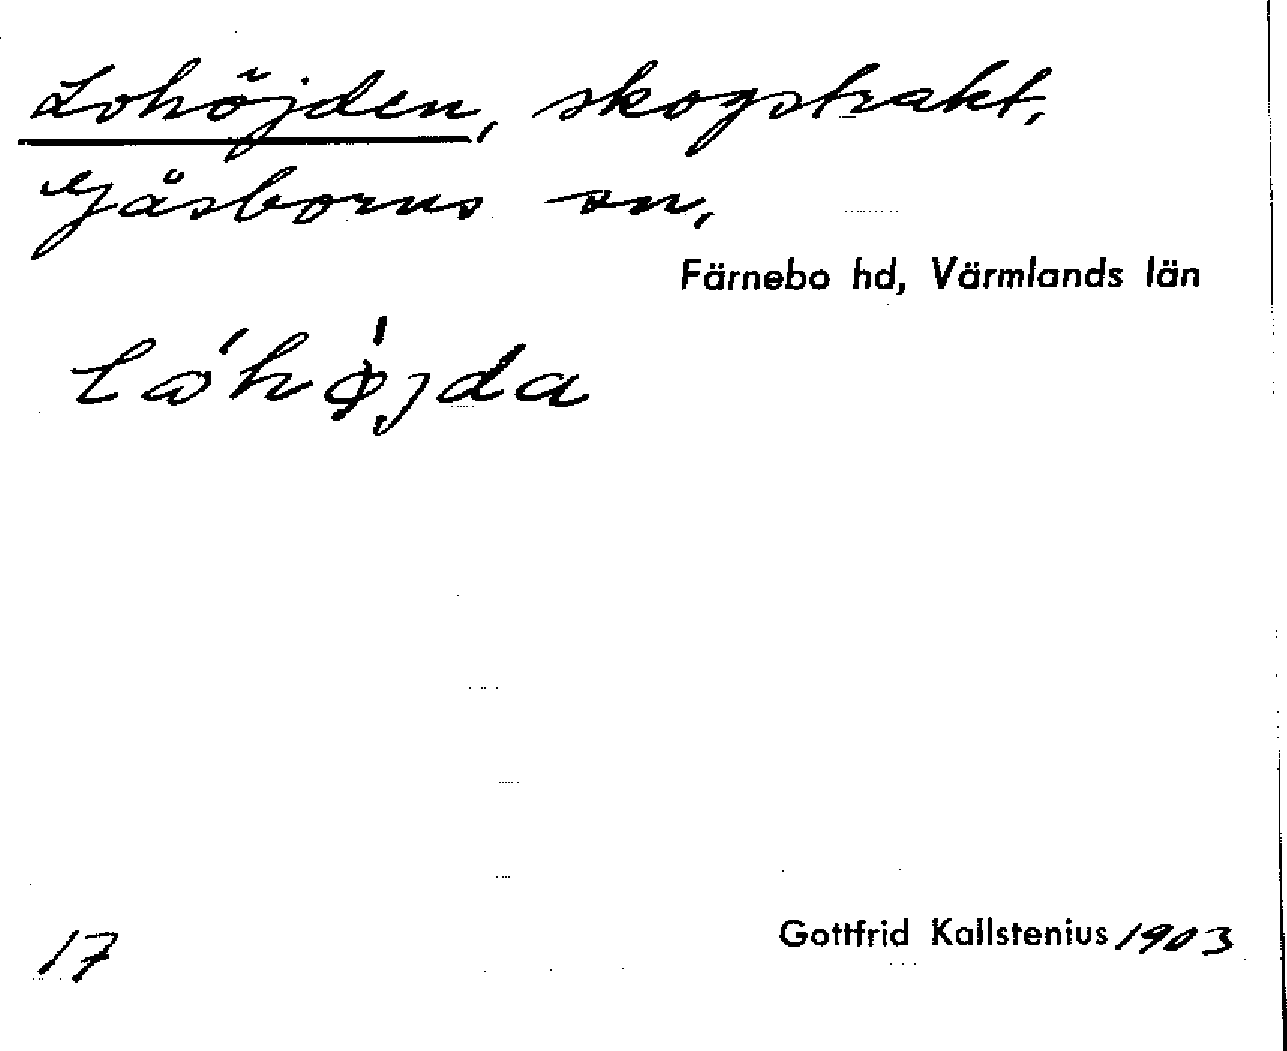 Lohöjden, skogstrakt,
Gåsborns sn,
Färnebo hd, Värmlands län
Lω´hø̀jda
17
Gottfrid Kallstenius 1903